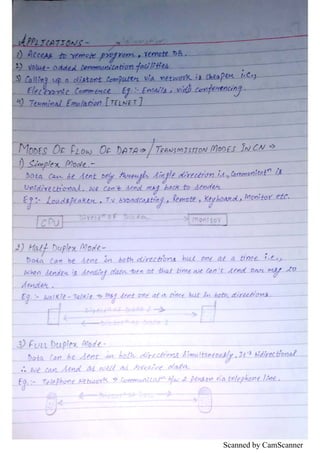 APPLICATIONS -
1) Access to remote program, remote DB.
2) Value-added communication facilities
3) Calling up a distant computer via network is cheaper i.e.,
Electronic Commerce Eg :- Emails, video conferencing.
4) Terminal Emulation [TELNET]
MODES OF FLOW OF DATA ⇒ / TRANSMISSION MODES IN CN ⇒
1) Simplex Mode. -
Data can be sent only through single direction i.e., Communicatⁿ is
Unidirectional. We can't send msg back to sender.
Eg :- Loudspeaker, T.V broadcasting, Remote, Keyboard, Monitor etc.
CPU Directⁿ of Data MONITOR
2) Half Duplex Mode -
Data can be sent in both directions but one at a time i.e.,
when sender is sending data then at that time we can't send our msg to
sender.
Eg :- Walkie - Talkie → Msg sent one at a time but in both directions.
Directⁿ of Data
Directⁿ of Data
3) FULL Duplex Mode -
Data can be sent in both directions simultaneously, It is bidirectional
∴ we can send as well as receive data.
Eg :- Telephone Network → Communicatⁿ b/w 2 person via telephone line.
Directⁿ of Data
Scanned by CamScanner